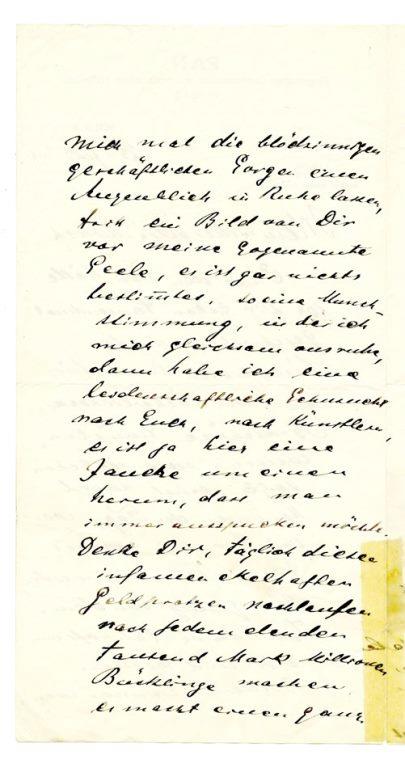 mich mal die blödsinnigen
geschäftlichen Sorgen einen
Augenblick in Ruhe lassen,
tritt ein Bild von Dir
vor meine sogenannte
Seele, es ist gar nichts
bestimtes, so eine Munch-
stimmung, in der ich
mich gleichsam ausruhe,
dann habe ich eine
leidenschaftliche Sehnsucht
nach Euch, nach Künstlern,
es ist ja hier eine
Jauche um einen
herum, dass man
immer ausspucken möchte.
Denke Dir, täglich diesen
infamen ekelhaften
Geldprotzen nachlaufen
nach jedem elenden
tausend Mark Millionen
Bücklinge machen
es macht einen ganz